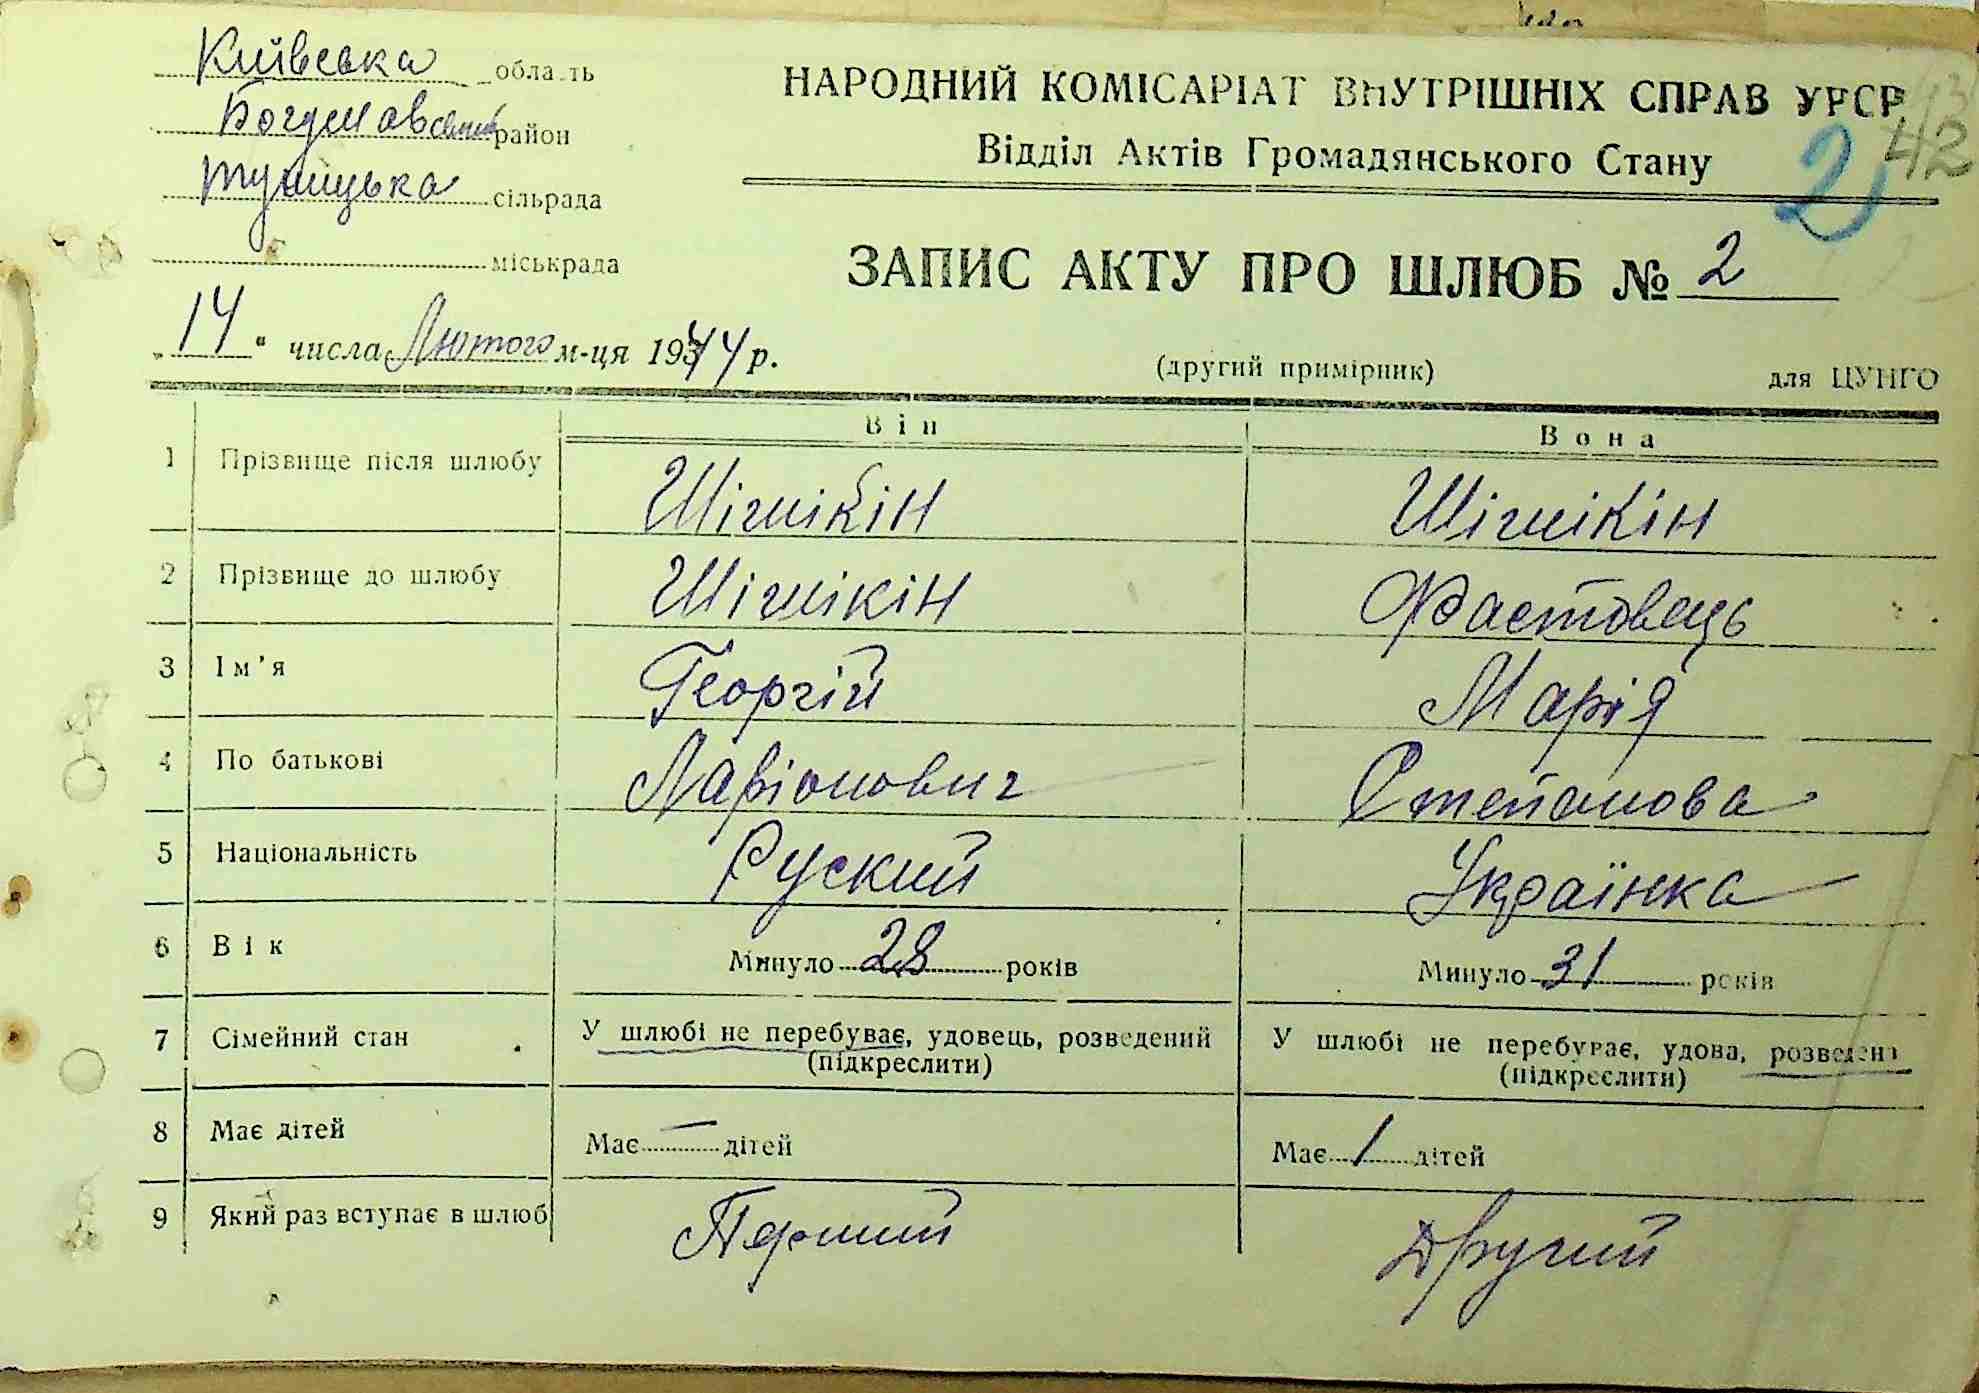 Київська область
Богуславський район
сільрада
міськрада
НАРОДНИЙ КОМІСАРІАТ ВНУТРІШНІХ СПРАВ УРСР
Відділ Актів Громадянського Стану
2 42
ЗАПИС АКТУ ПРО ШЛЮБ № 2
„14“ числа Лютого м-ця 1944 р.
(другий примірник) для ЦУНГО
Він Вона
1 Прізвище після шлюбу Шішікін Шішікін
2 Прізвище до шлюбу Шішікін Фастовець
3 Ім’я Георгій Марія
4 По батькові Ларіонович Степанова
5 Національність Руский Українка
6 Вік Минуло 28 років Минуло 31 років
7 Сімейний стан У шлюбі не перебуває, удовець, розведений У шлюбі не перебуває, удова, розведена
(підкреслити) (підкреслити)
8 Має дітей Має — дітей Має 1 дітей
9 Який раз вступає в шлюб Перший Другий